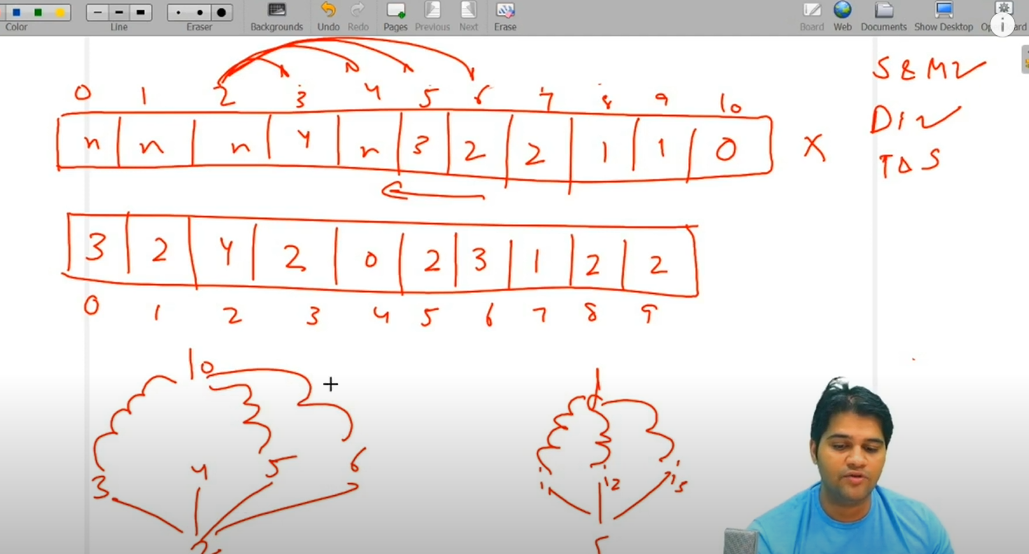 Color Line Eraser Backgrounds Undo Redo Pages Previous Next Erase Board Web Documents Show Desktop
0 1 2 3 4 5 6 7 8 9 10
n n n 4 n 3 2 2 1 1 0 X
S & M
DI
T & S
3 2 4 2 0 2 3 1 2 2
0 1 2 3 4 5 6 7 8 9
10
d
3 4 5 6
i1 i2 i3
2
S